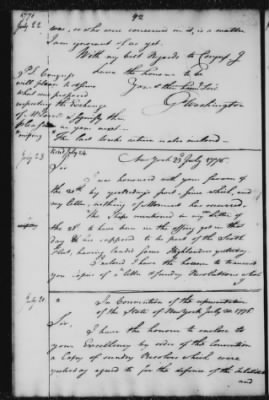 1776
July 22
42
was, or who were concerned in it, is a matter
I am ignorant of as yet.
With my best Regards to Congress I
have the honour to be
G Washington
P.S. Congress
will please to
what are proposed
respecting the Exchange
of
as you meet
The last weeks return is also enclosed
July 23
New York 23 July 1776.
Sir
I was honoured with your favour of
the 20th by yesterday's post, since which, and
my letter, nothing of moment has occurred.
The Ships mentioned in my letter of
the 21st to have been in the offing, got in that
day & are supposed to be part of the Scotch
Fleet, having landed some Highlanders yesterday.
Enclosed I have the honour to transmit
you Copies of a letter & sundry Resolutions which
I
July 20
In Convention of the representatives
of the State of New York July 20 1776
Sir,
I have the honour to enclose to
your Excellency by order of the Convention
a Copy of sundry Resolves which were
yesterday agreed to for the defence of the
and